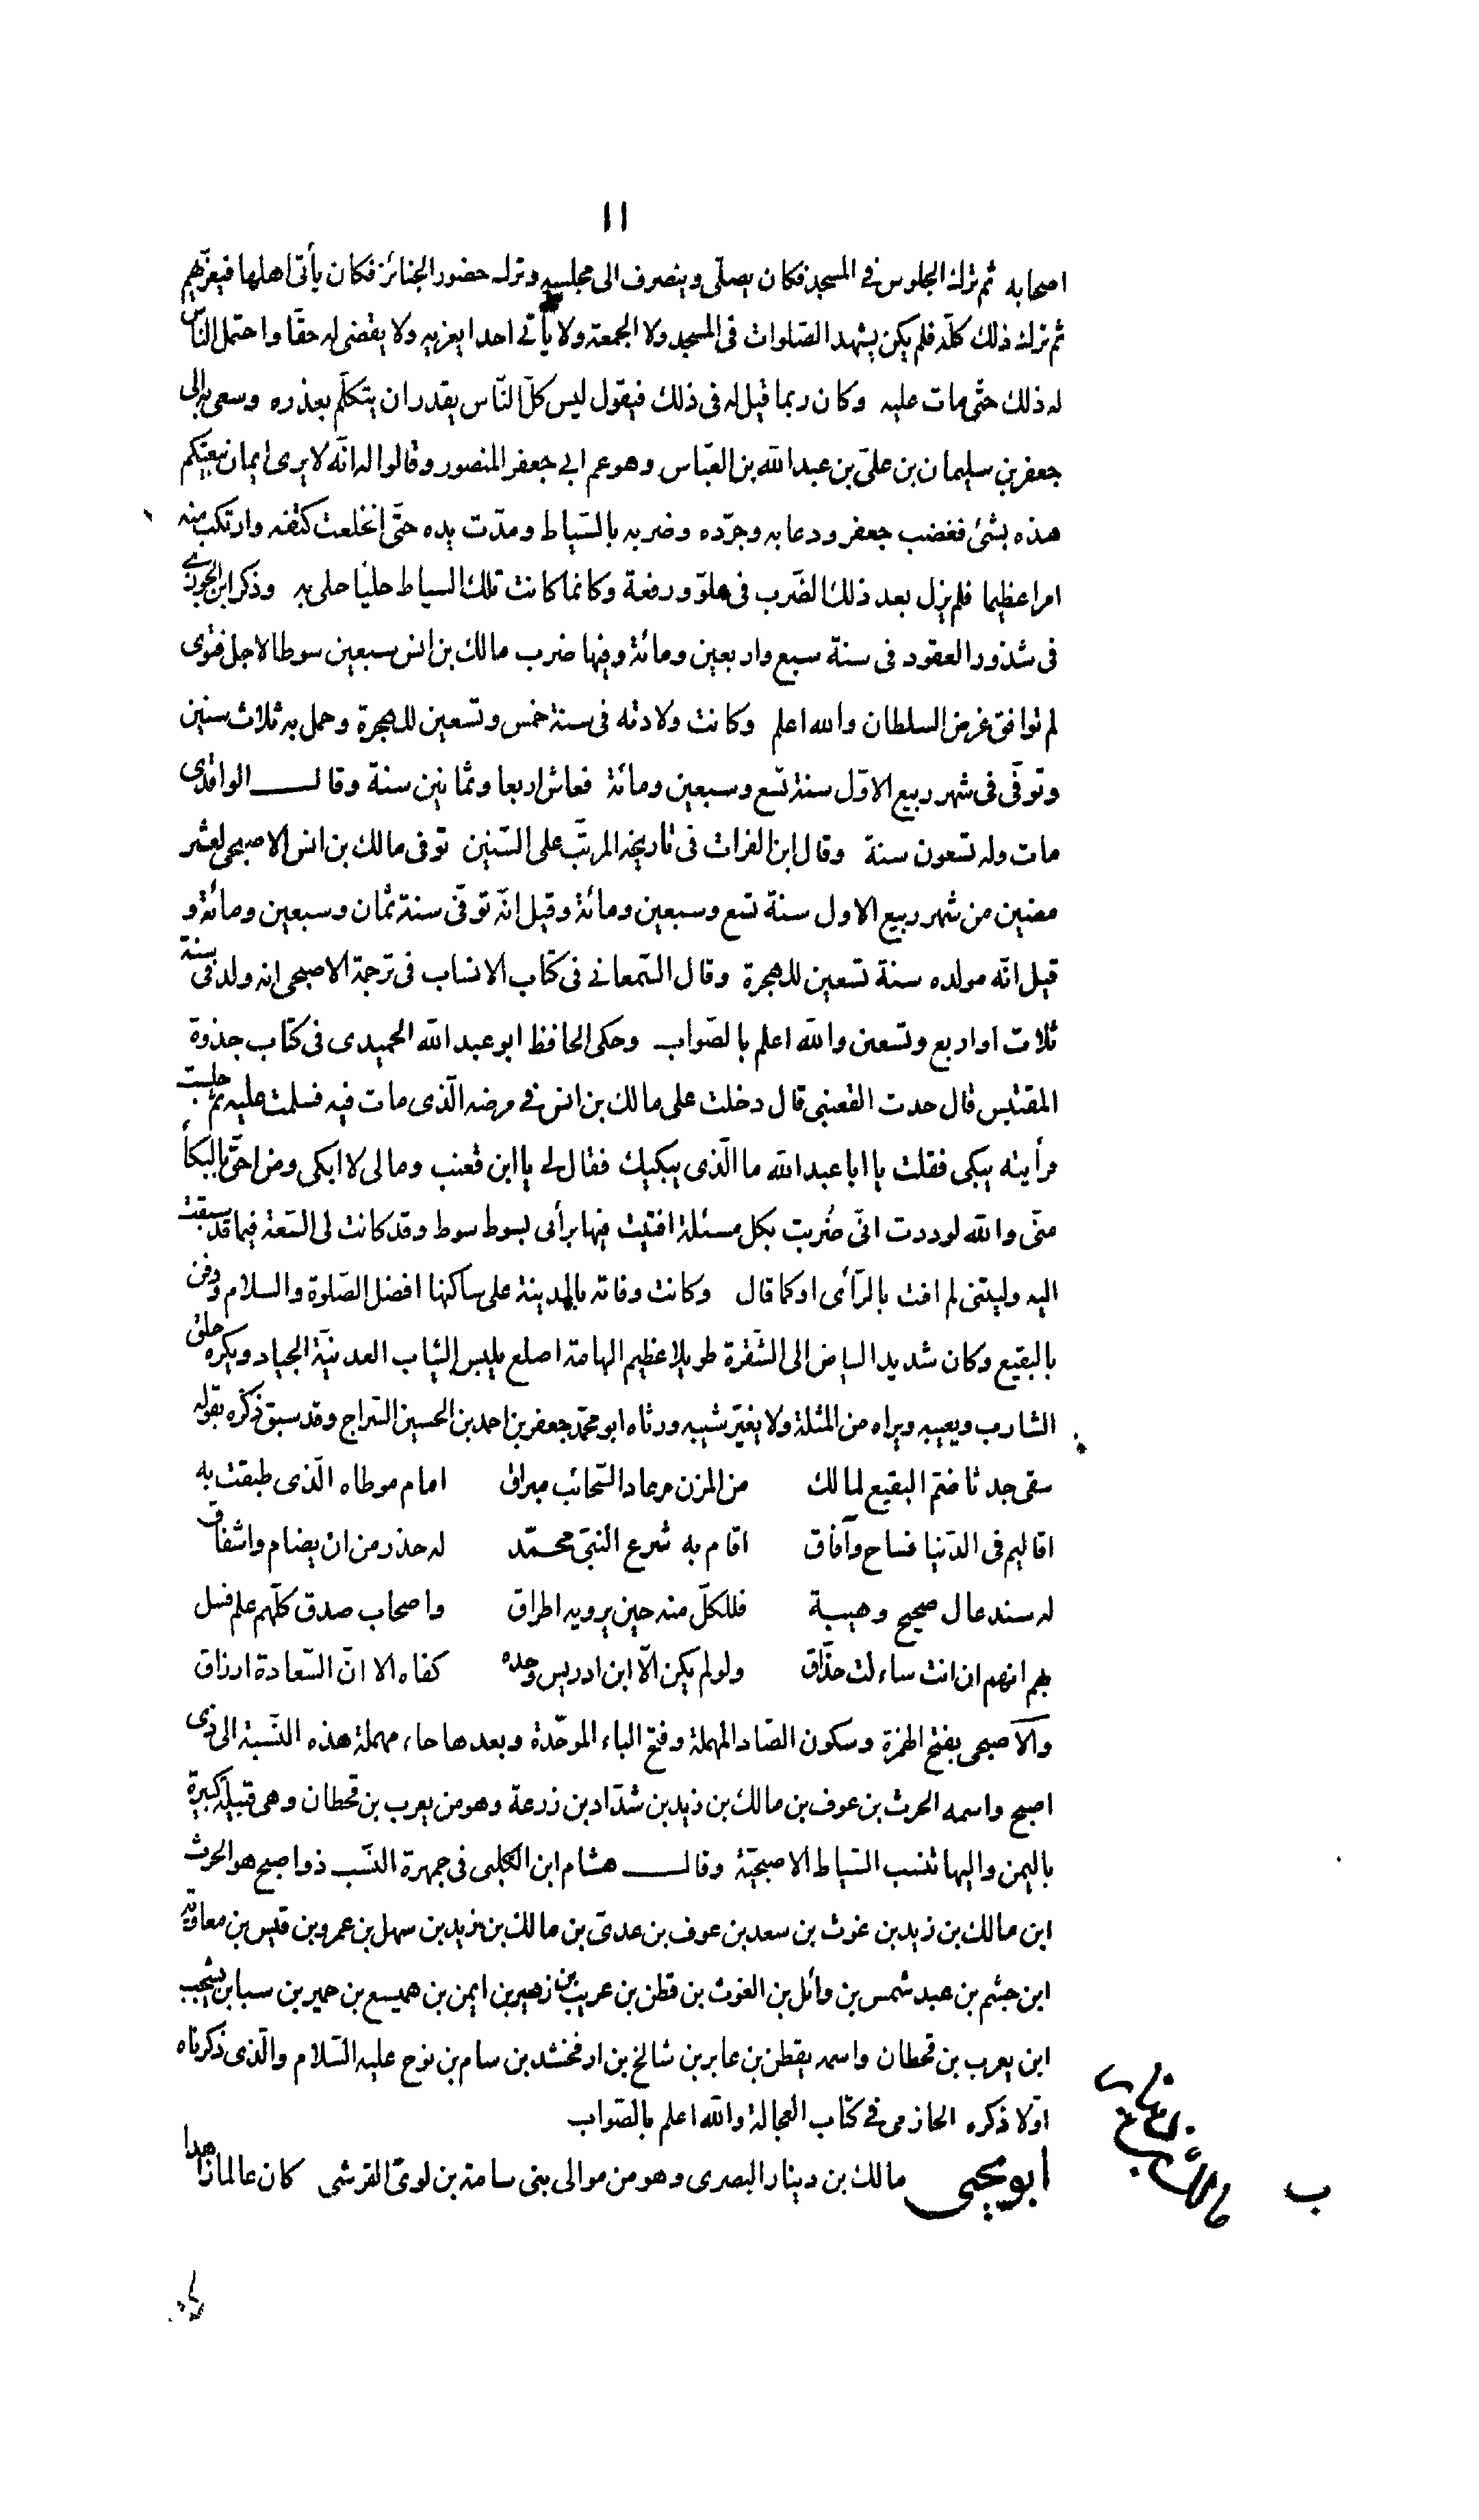 ١١
اصحابه ثم ترك الجلوس فى المسجد فكان يصلّى وينصرف الى مجلسه وترك حضور الجنائز فكان يأتى اهلها فيعزّيهم
ثم ترك ذلك كلّه فلم يكن يشهد الصّلوات فى المسجد ولا الجمعة ولا يأتى احدا يعزيه ولا يقضى له حقّا واحتمل النّاس
له ذلك حتّى مات عليه وكان ربما قيل له فى ذلك فيقول ليس كلّ النّاس يقدر ان يتكلّم بعذره وسعى به الى
جعفر بن سليمان بن علىّ بن عبد الله بن العبّاس وهو عم ابى جعفر المنصور وقالوا له انّه لا يرى ايمان بيعتكم
هذه بشئ فغضب جعفر ودعا به وجرّده وضربه بالسّياط ومدّت يده حتّى انخلعت كتفه وارتكب منه
امرا عظيما فلم يزل بعد ذلك الضّرب فى علوّ ورفعة وكانما كانت تلك السياط حليا حلى به وذكر ابن الجوزى
فى شذور العقود فى سنة سبع واربعين ومائة وفيها ضرب مالك بن انس سبعين سوطا لاجل فتوى
لم توافق غرض السلطان والله اعلم وكانت ولادته فى سنة خمس وتسعين للهجرة وحمل به ثلاث سنين
وتوفّى فى شهر ربيع الاوّل سنة تسع وسبعين ومائة فعاش اربعا وثمانين سنة وقال الواقدى
مات وله تسعون سنة وقال ابن الفرات فى تاريخه المرتّب على السّنين توفى مالك بن انس الاصبحى لعشر
مضين من شهر ربيع الاول سنة تسع وسبعين ومائة وقيل انّه توفّى سنة ثمان وسبعين ومائة و
قيل انّه مولده سنة تسعين للهجرة وقال السّمعانى فى كتاب الانساب فى ترجمة الاصبحى انه ولد فى سنة
ثلات او اربع وتسعين والله اعلم بالصّواب وحكى الحافظ ابو عبد الله الحميدى فى كتاب جذوة
المقتبس قال حدث القعنبى قال دخلت على مالك بن انس فى مرضه الّذى مات فيه فسلمت عليه ثم جلست
فرأيته يبكى فقلت يا ابا عبد الله ما الّذى يبكيك فقال لى يا ابن قعنب ومالى لا ابكى ومن احقّ بالبكاء
منّى والله لوددت انّى ضُربت بكل مسئلة افتيت فيها برأى بسوط سوط وقد كانت لى السّعة فيما قد سبقت
اليه وليتنى لم افت بالرّأى او كما قال وكانت وفاته بالمدينة على ساكنها افضل الصّلوة والسلام ودفن
بالبقيع وكان شديد البياض الى الشّقرة طويلا عظيم الهامة اصلع يلبس الثياب العدنيّة الجياد ويكره حلق
الشارب ويعيبه ويراه من المثلة ولا يغيّر شيبه ورثاه ابو محمّد جعفر بن احمد بن الحسين السّراج وقد سبق ذكره بقوله
سقى جدثا ضمّ البقيع لمالك من المزن مرعاد السّحائب مبراق امام موطاه الّذى طبقت به
اقاليم فى الدّنيا فساح وآفاق اقام به شرع النّبىّ محمّد له حذر من ان يضام واشفاق
له سند عال صحيح وهيبة فللكلّ منه حين يرويه اطراق واصحاب صدق كلّهم علم فسل
بهم انهم ان انت ساءلت حذّاق ولو لم يكن الّا ابن ادريس وحده كفاه الا انّ السّعادة ارزاق
والاصبحى بفتح الهمزة وسكون الصّاد المهملة وفتح الباء الموحّدة وبعدها حاء مهملة هذه النّسبة الى ذى
اصبح واسمه الحرث بن عوف بن مالك بن زيد بن شدّاد بن زرعة وهو من يعرب بن قحطان وهى قبيلة كبيرة
باليمن واليها تنسب السّياط الاصبحيّة وقال هشام ابن الكلبى فى جمهرة النّسب ذو اصبح هو الحرث
ابن مالك بن زيد بن غوث بن سعد بن عوف بن عدىّ بن مالك بن زيد بن سهل بن عمرو بن قيس بن معاوية
ابن جشم بن عبد شمس بن وائل بن الغوث بن قطن بن عريب بن زهير بن ايمن بن هميسع بن حمير بن سبا بن يشجب
ابن يعرب بن قحطان واسمه يقطن بن عابر بن شالخ بن ارفخشد بن سام بن نوح عليه السّلام والّذى ذكرناه
اوّلا ذكره الحازمى فى كتاب العجالة والله اعلم بالصّواب
ابو يحيى مالك بن دينار البصرى وهو من موالى بنى سامة بن لوىّ القرشى كان عالما زاهدا
مالك بن دينار
ب